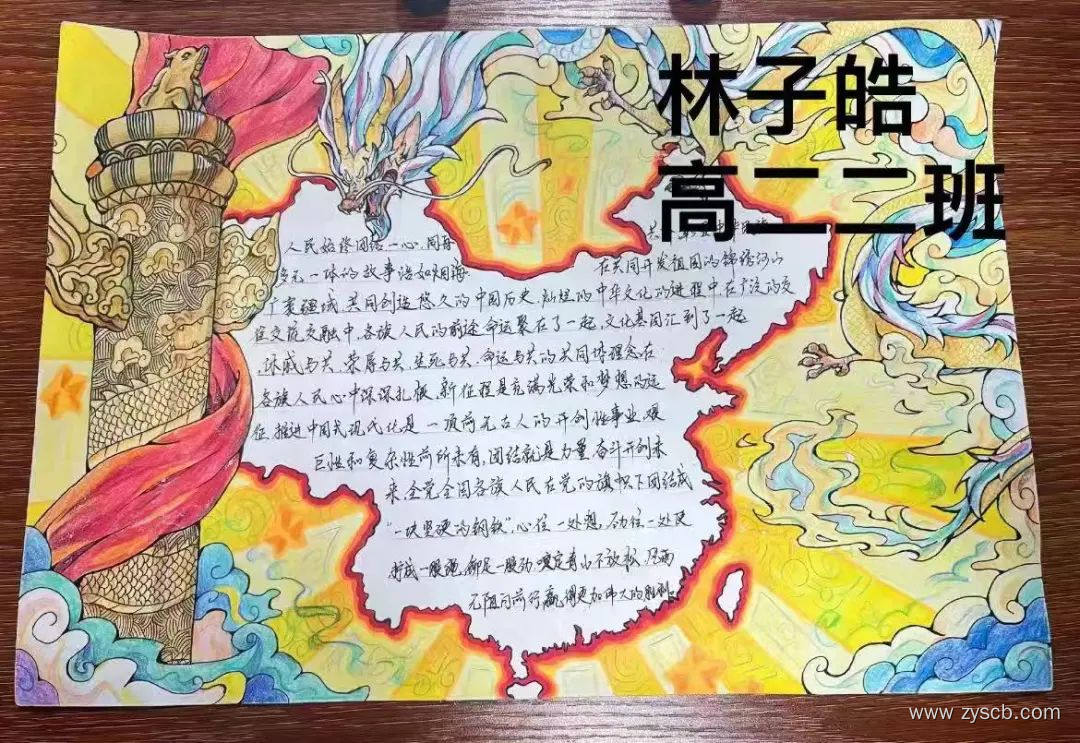 林子皓
高二二班
人民始终团结一心,同舟
多元一体的故事浩如烟海
在共同开发祖国的锦绣河山
广袤疆域,共同创造悠久的中国历史、灿烂的中华文化的进程中,在广泛的交
往交流交融中,各族人民的前途命运聚在了一起,文化基因汇到了一起
休戚与共、荣辱与共、生死与共、命运与共的共同体理念在
各族人民心中深深扎根,新征程是充满光荣和梦想的远
征,推进中国式现代化是一项前无古人的开创性事业,艰
巨性和复杂性前所未有,团结就是力量,奋斗开创未
来,全党全国各族人民在党的旗帜下团结成
“一块坚硬的钢铁”,心往一处想,劲往一处使
拧成一股绳,铆足一股劲,咬定青山不放松,风雨
无阻向前行,赢得更加伟大的胜利。
www.zyscb.com